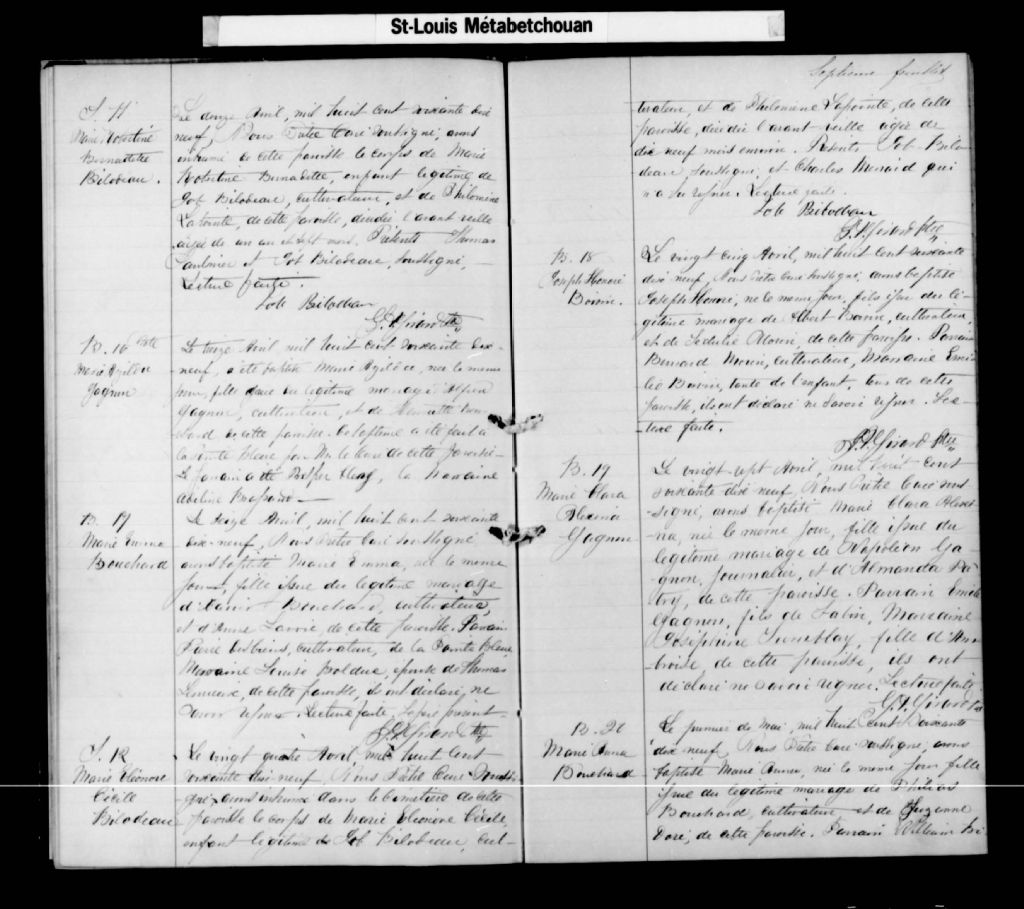 St-Louis Métabetchouan
S. 11
Marie
Bernadette
Bilodeau.
Le douze Avril, mil huit cent soixante dix
neuf, Nous Prêtre Curé soussigné, avons
inhumé de cette paroisse le corps de Marie
Bernadette, enfant légitime de
Job Bilodeau, cultivateur, et de Philomène
Lapointe, de cette paroisse, décédée l'avant veille
âgée de un an et sept mois. Présents Thomas
et Job Bilodeau, soussigné,
Lecture faite.
Job Bilodeau
B. 16
Marie
Gagnon
Le treize Avril mil huit cent soixante dix-
neuf, a été baptisé Marie née le même
jour, fille issue du légitime mariage
Gagnon, cultivateur, et de Henriette
de cette paroisse. Ce baptême a été fait à
la Pointe Bleue par Mr le Curé de cette paroisse
Le parrain a été Cleary, la Marraine
Adeline
B. 17
Marie Emma
Bouchard
Le seize Avril, mil huit cent soixante
dix-neuf, Nous Prêtre Curé soussigné
avons baptisé Marie Emma, née le même
jour, fille issue du légitime mariage
d'Xavier Bouchard, cultivateur,
et d'Anne de cette paroisse. Parrain
Pierre cultivateur, de la Pointe Bleue
Marraine Louise Bolduc, épouse de Thomas
Lemieux, de cette paroisse, ils ont déclaré, ne
savoir signer. Lecture faite, le père présent.
S. 12
Marie Eléonore
Cécile
Bilodeau
Le vingt quatre Avril, mil huit cent
soixante dix neuf, Nous Prêtre Curé soussi-
gné avons inhumé dans le cimetière de cette
paroisse le corps de Marie Eléonore Cécile
enfant légitime de Job Bilodeau, cul-
Septième feuillet
tivateur, et de Philomène Lapointe, de cette
paroisse, décédée l'avant-veille âgée de
dix neuf mois environ. Présents Job Bilo-
deau, soussigné, et Charles Ménard qui
n'a su signer. Lecture faite.
Job Bilodeau
B. 18
Joseph Honoré
Boivin.
Le vingt cinq Avril, mil huit cent soixante
dix neuf, Nous Prêtre Curé soussigné, avons baptisé
Joseph Honoré, né le même jour, fils issu du lé-
gitime mariage de Albert Boivin, cultivateur,
et de Sédulie Morin, de cette paroisse. Parrain
Bernard Morin, cultivateur, Marraine Emi-
lie Boivin, tante de l'enfant, tous de cette
paroisse, ils ont déclaré ne savoir signer. Lec-
ture faite.
B. 19
Marie Clara
Alexina
Gagnon
Le vingt sept Avril, mil huit cent
soixante dix neuf, Nous Prêtre Curé sous
signé, avons baptisé Marie Clara Alexi-
na, née le même jour, fille issue du
légitime mariage de Napoléon Ga-
gnon, journalier, et d'Almanda Pa-
try, de cette paroisse. Parrain
Gagnon, fils de Sabin, Marraine
Joséphine Tremblay, fille d'Am-
broise, de cette paroisse, ils ont
déclaré ne savoir signer. Lecture faite.
B. 20
Marie Anna
Bouchard
Le premier de Mai, mil huit cent soixante
dix neuf, Nous Prêtre Curé soussigné, avons
baptisé Marie Anna, née le même jour fille
issue du légitime mariage de Philias
Bouchard, cultivateur et de Suzanne
Doré, de cette paroisse. Parrain William